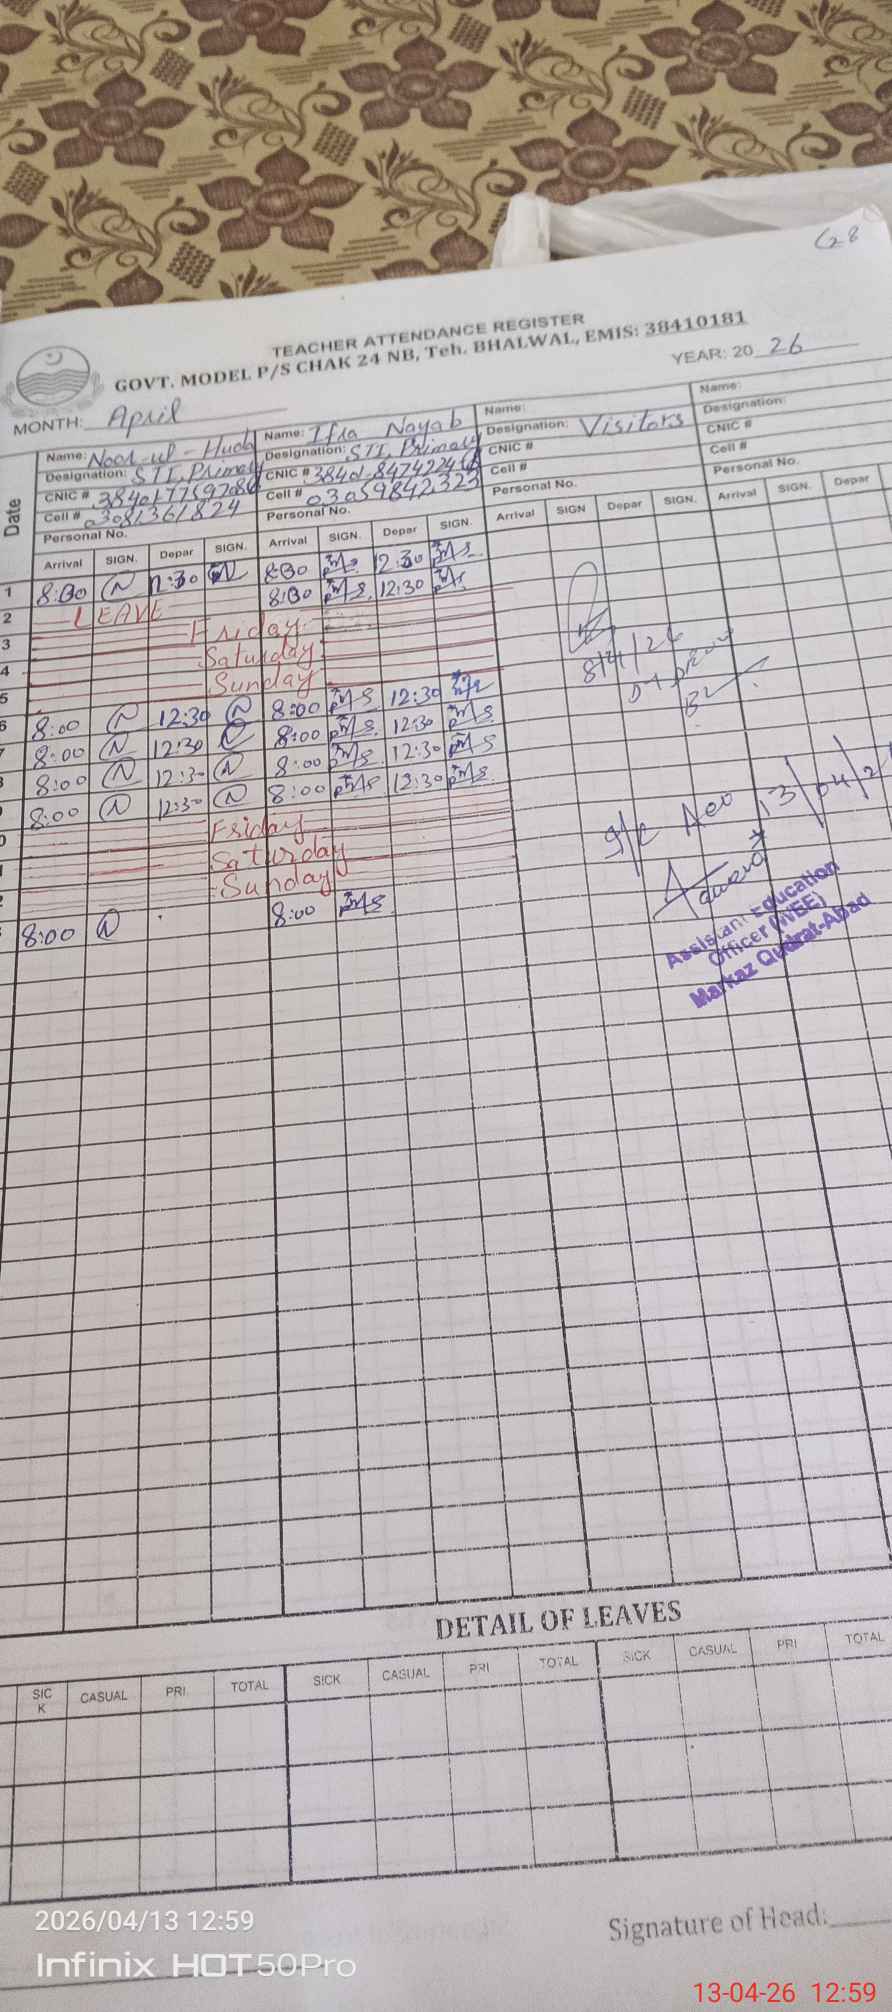 G28
TEACHER ATTENDANCE REGISTER
GOVT. MODEL P/S CHAK 24 NB, Teh. BHALWAL, EMIS: 38410181
YEAR: 2026
MONTH: April
Date
Name: Noor-ul-Huda
Designation: STI, Primary
CNIC #
Cell # 03081361824
Personal No.
Name: Ifra Nayab
Designation: STI, Primary
CNIC #
Cell # 03059842323
Personal No.
Name:
Designation: Visitors
CNIC #
Cell #
Personal No.
Name:
Designation:
CNIC #
Cell #
Personal No.
Arrival SIGN. Depar SIGN. Arrival SIGN. Depar SIGN. Arrival SIGN Depar SIGN. Arrival SIGN. Depar
1 8:00 12:30 8:00 12:30
2 LEAVE 8:00 12:30
3 Friday
4 Saturday
5 Sunday
6 8:00 12:30 8:00 12:30
7 8:00 12:30 8:00 12:30
8:00 12:30 8:00 12:30
8:00 12:30 8:00 12:30
Friday
Saturday
Sunday
8:00 8:00
8/4/26
13/04/2
Assistant Education
Officer (WEE)
Markaz Qudrat-Abad
DETAIL OF LEAVES
SICK CASUAL PRI. TOTAL SICK CASUAL PRI TOTAL SICK CASUAL PRI TOTAL
Signature of Head:
2026/04/13 12:59
Infinix HOT 50 Pro
13-04-26 12:59